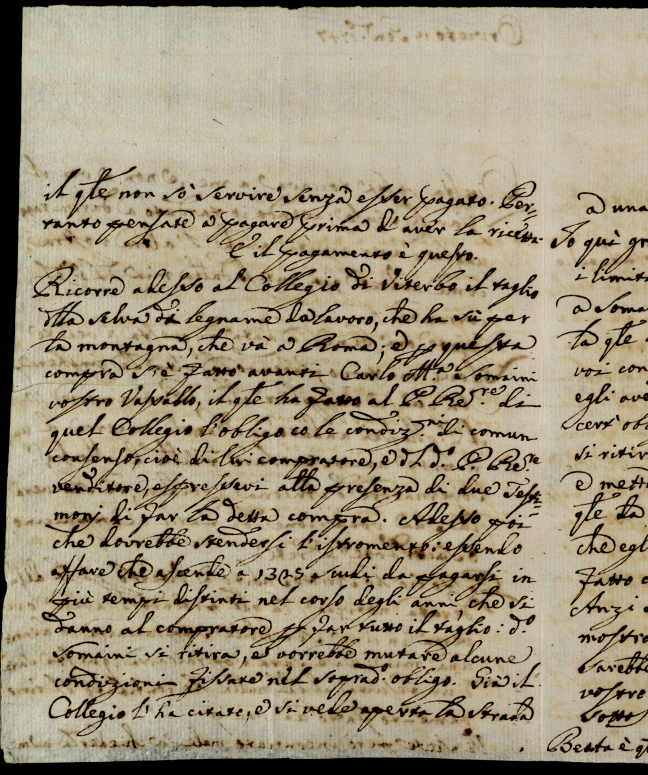 il qle non sò servire senza esser pagato. Per=
tanto pensate a pagare prima d'aver la ricetta.
E il pagamento è questo.
Ricorre adesso al Collegio di Viterbo il taglio
dlla selva da legname da lavoro, che ha sù per
la montagna, che và a Roma; e p questa
compra s'è fatto avanti Carlo Somaini
vostro Vassallo, il qle ha fatto al P. Re.re di
quel Collegio l'obligo co le condiz.ni di comun
consenso, cioè di lui compratore, e dl d.o P. Re.re
venditore, espressevi alla presenza di due Testi=
monj di far la detta compra. Adesso poi
che dovrebbe stendersi l'istromento: essendo
affare che ascende a 1325 scudi da pagarsi in
più tempi distinti nel corso degli anni che si
danno al compratore p far tutto il taglio: d.o
Somaini si ritira, e vorrebbe mutare alcune
condizioni fissate nel soprad.o obligo. Già il
Collegio l'ha citato, e si vede aperta la strada
a una
To quì gr
i limit
a Soma
la qle
voi con
egli ave
cert' obl
si ritir
e mett
qle la
che egl
fatto
Anzi
mostra
sarebbe
vostro
sotto
Beata è q